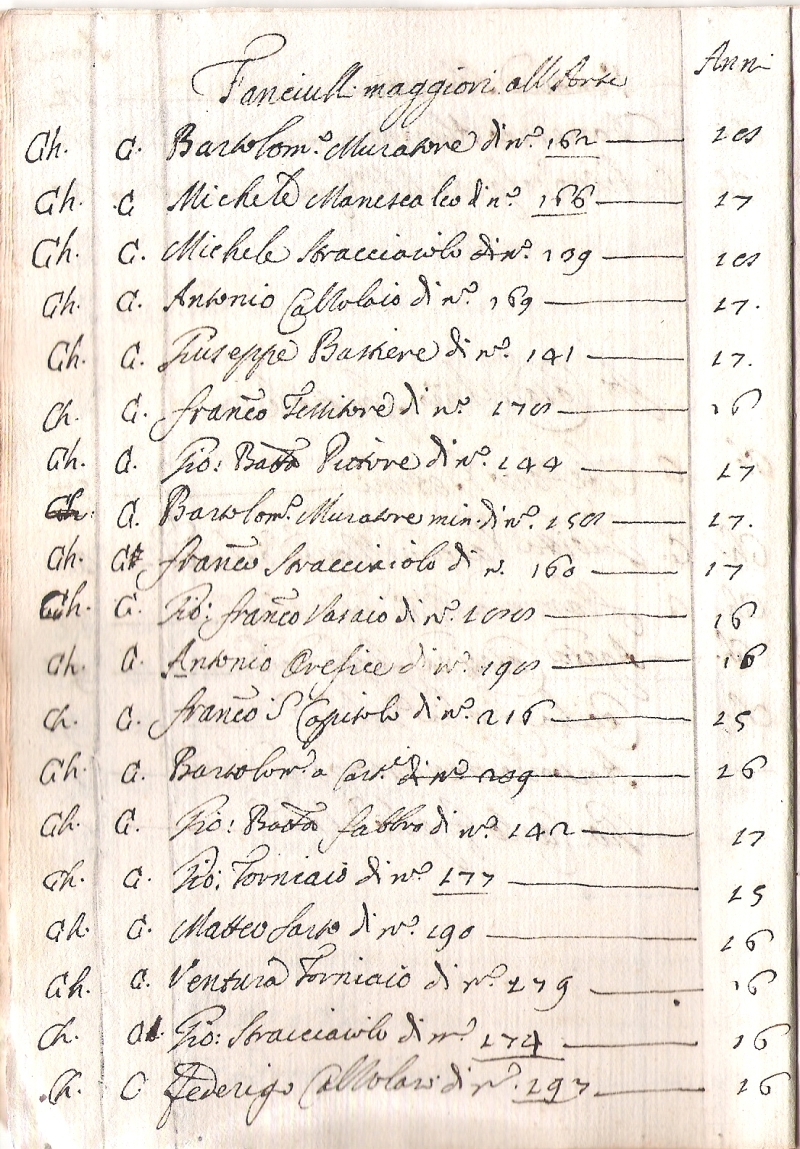 Fanciulli maggiori all'Arte Anni
Ch. C. Bartolom.º Muratore di n.º 162 18
Ch. C Michele Manescalco di n.º 166 17
Ch. C. Michele Stracciaiolo di n.º 139 18
Ch. C. Antonio Calzolaio di n.º 169 17.
Ch. C. Giuseppe Barbiere di n.º 141 17.
Ch. C. Franco Tessitore di n.º 178 16
Ch. C. Gio: Batta Pittore di n.º 144 17
Ch. C. Bartolom.º Muratore min. di n.º 158 17.
Ch. C. Franco Stracciaiolo di n. 160 17
Ch. C. Gio: Franco Vasaio di n.º 188 16
Ch. C. Antonio Orefice di n.º 198 16
Ch. C. Franco S Capitolo di n.º 216 15
Ch. C. Bartolom.º a di n.º 209 16
Ch. C. Gio: Batta Fabbro di n.º 142 17
Ch. C. Gio: Torniaio di n.º 177 15
Ch. C. Matteo Sarto di n.º 190 16
Ch. C. Ventura Torniaio di n.º 179 16
Ch. C Gio: Stracciaiolo di n.º 174 16
Ch. C Federigo Calzolaro di n.º 197 16